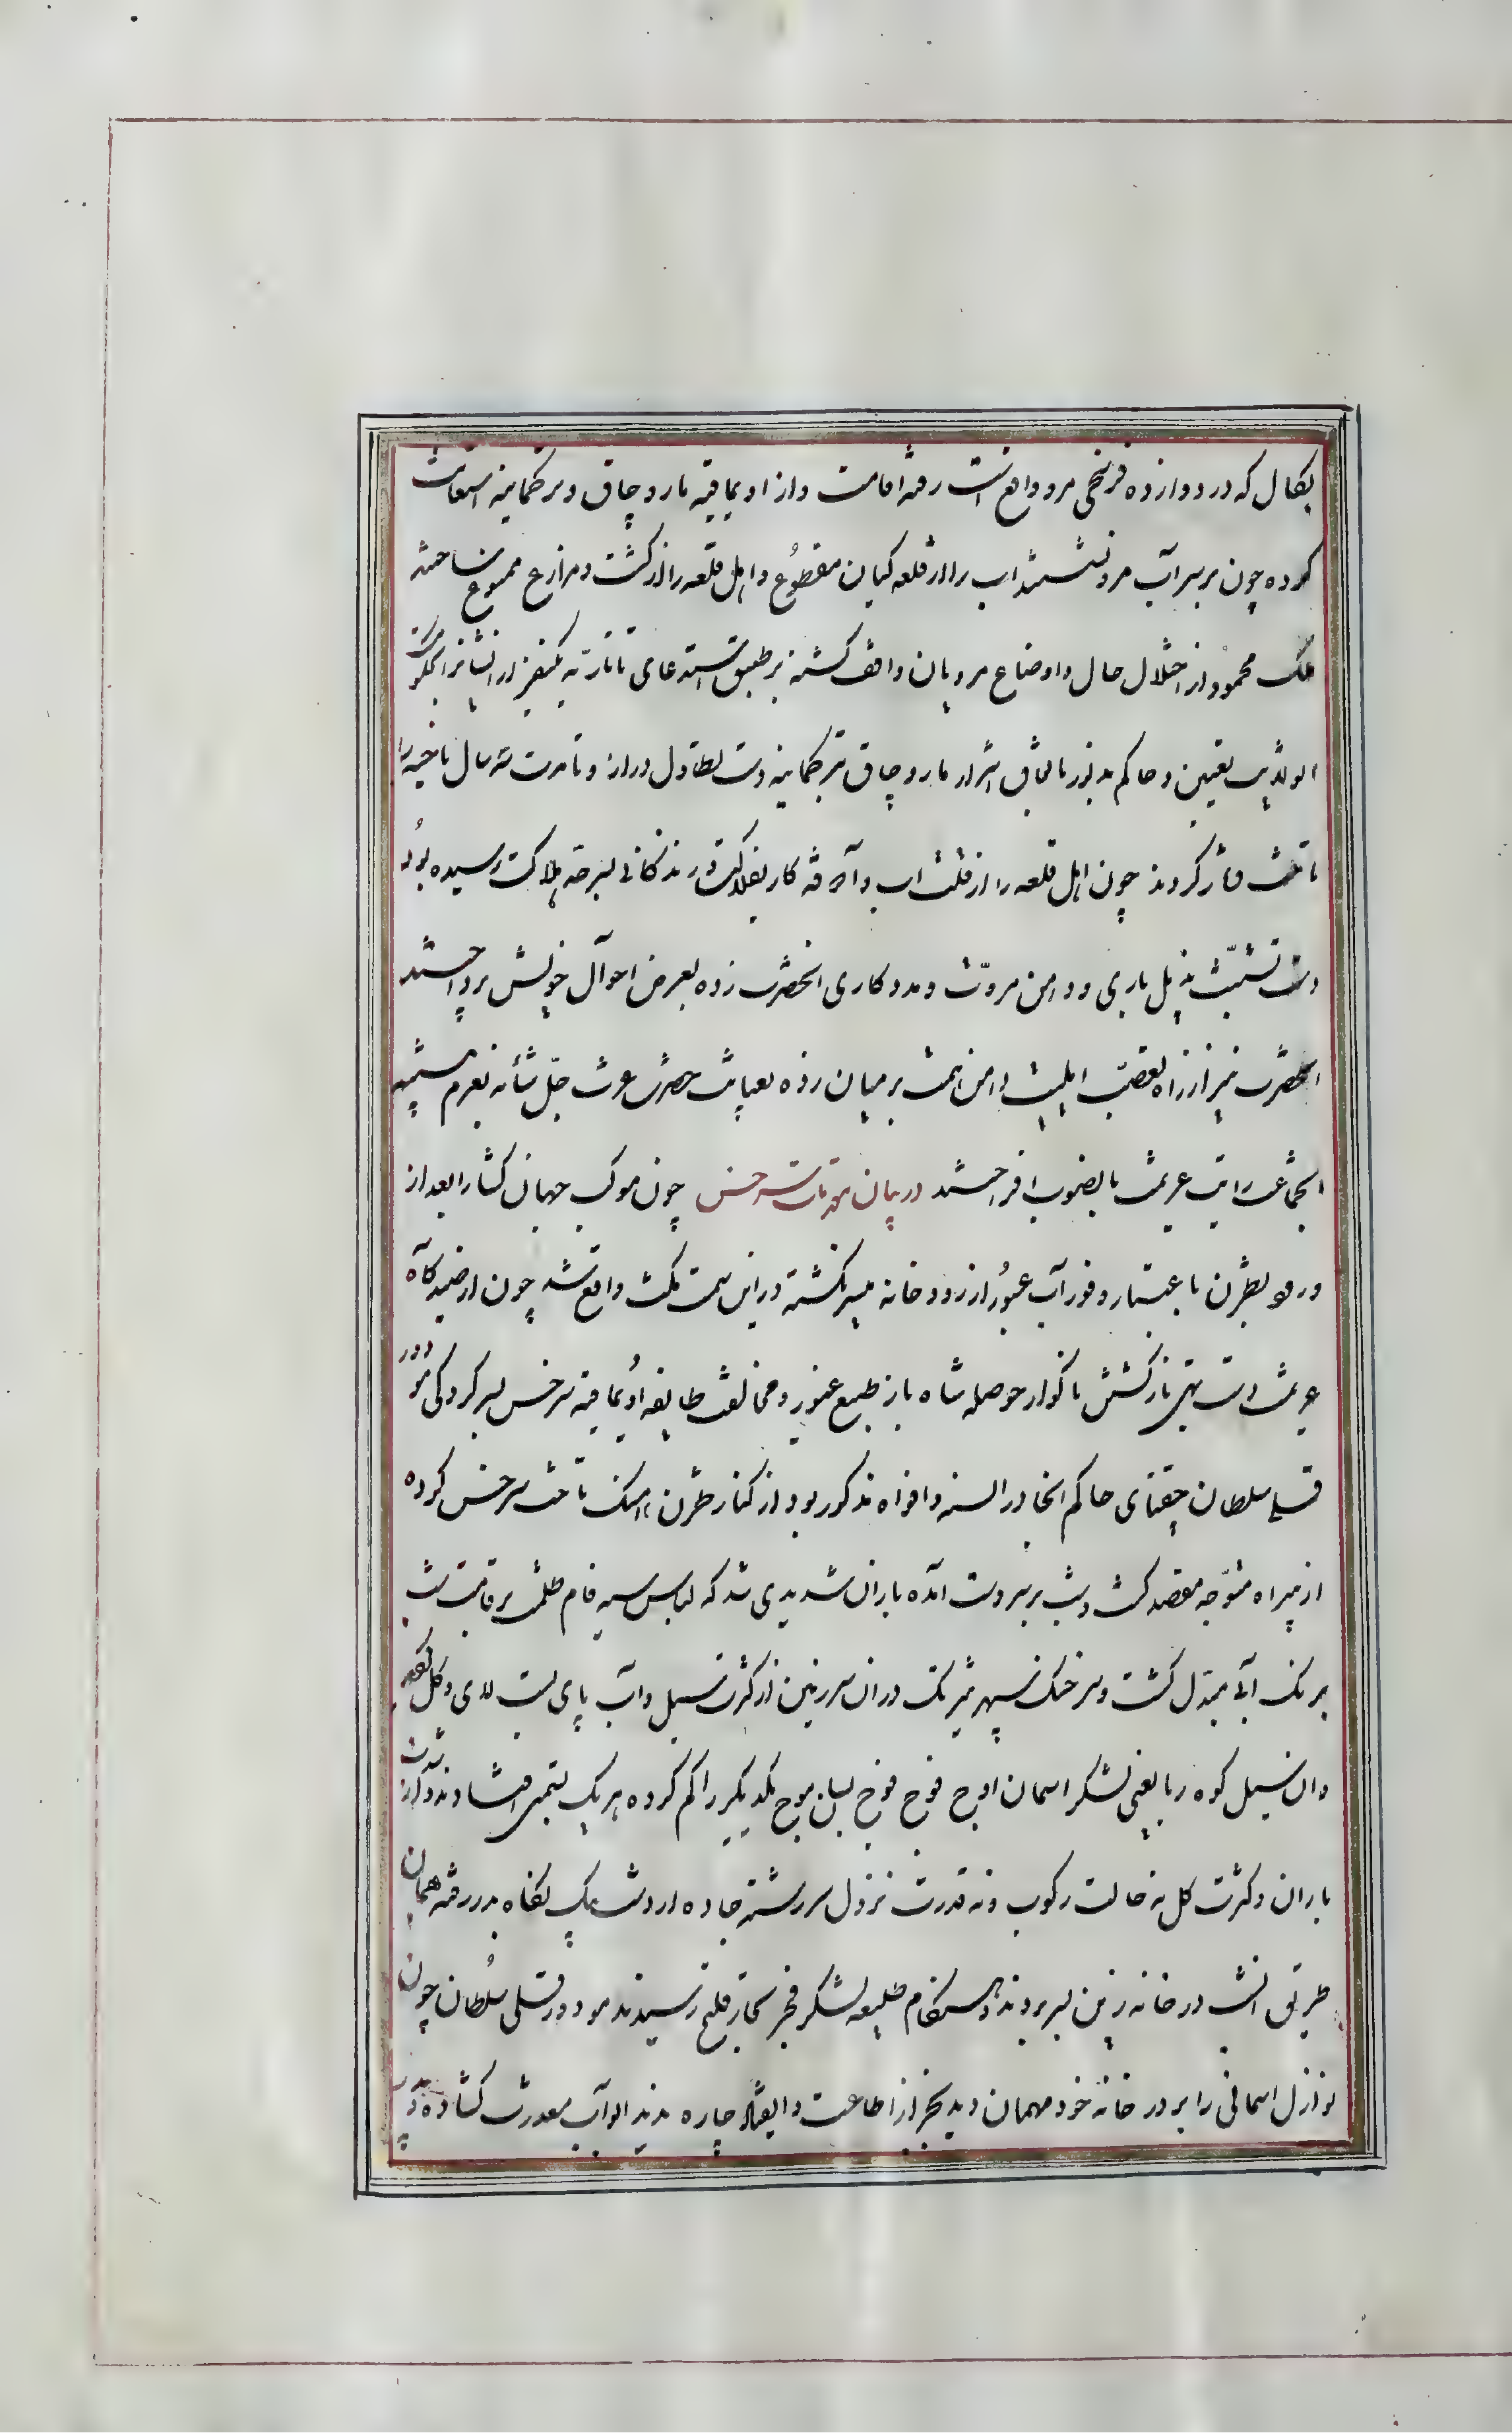 بکال که در دوازده فرسخی مرو واقع است رفته اقامت و از اویماقیه ماروچاق و ترکمانیه استعانت
کرده چون بر سر آب مرو نشستند اب را از قلعه کیان مقطوع و اهل قلعه را از کشت و مزارع ممنوع ساختند
ملک محمود از اختلال حال و اوضاع مرویان واقف کشته بر طبق استدعای تاتاریه یکنفر از ایشانرا
تعیین و حاکم مذبور باتفاق اشرار ماروچاق و ترکمانیه دست تطاول دراز و تا مدت سه سال ناحیه را
تاخت و تاز کردند چون اهل قلعه را از قلت اب و آذوقه کار بفلاکت و زندکانی بسرحد هلاکت رسیده بود
دست تشبث بذیل یاری و دامن مروّت و مددکاری انحضرت زده بعرض احوال خویش پرداختند
انحضرت نیز از راه تعصب ایلیت دامن همت بر میان زده بعنایت حضرت عزت جلّ شأنه بعزم تنبیه
انجماعت رایت عزیمت بانصوب افراختند در بیان سرخس چون موکب جهان کشا را بعد از
ورود بطژن باعتبار وفور آب عبور از رودخانه میسر نکشته در این سمت مکث واقع شد چون از صیدکاه
عزیمت دست تهی باز کشتن ناکوار حوصله شاه باز طبع غیور و مخالفت طایفه اویماقیه سرخس بسرکردکی مودود
قلی سلطان جغتای حاکم انجا در السنه و افواه مذکور بود از کنار طژن اهنک تاخت سرخس کرده
از بیراه متوجه مقصد کشت و شب بر سر دست آمده باران شدیدی شد که لباس سیه فام ظلمت بر قامت شب
برنک آبی مبدّل کشت و سرخنک سپهر نیزتک در ان سرزمین از کثرت سیل و آب پای بست لای و کل
و ان سیل کوه ربا یعنی لشکر اسمان اوج فوج فوج بسان موج یکدیکر را کم کرده هر یک بسمتی افتادند و از شدت
باران و کثرت کل نه حالت رکوب و نه قدرت نزول سررشته جاده از دست پیک نکاه بدر رفته همان
طریق انشب در خانه زین بسر بردند و هنکام طلیعه لشکر فجر بکنار قلعه رسیدند مودود قلی سلطان چون
نوازل اسمانی را بر در خانه خود مهمان دید بجز از اطاعت و انقیاد چاره ندید ابواب معذرت کشاده